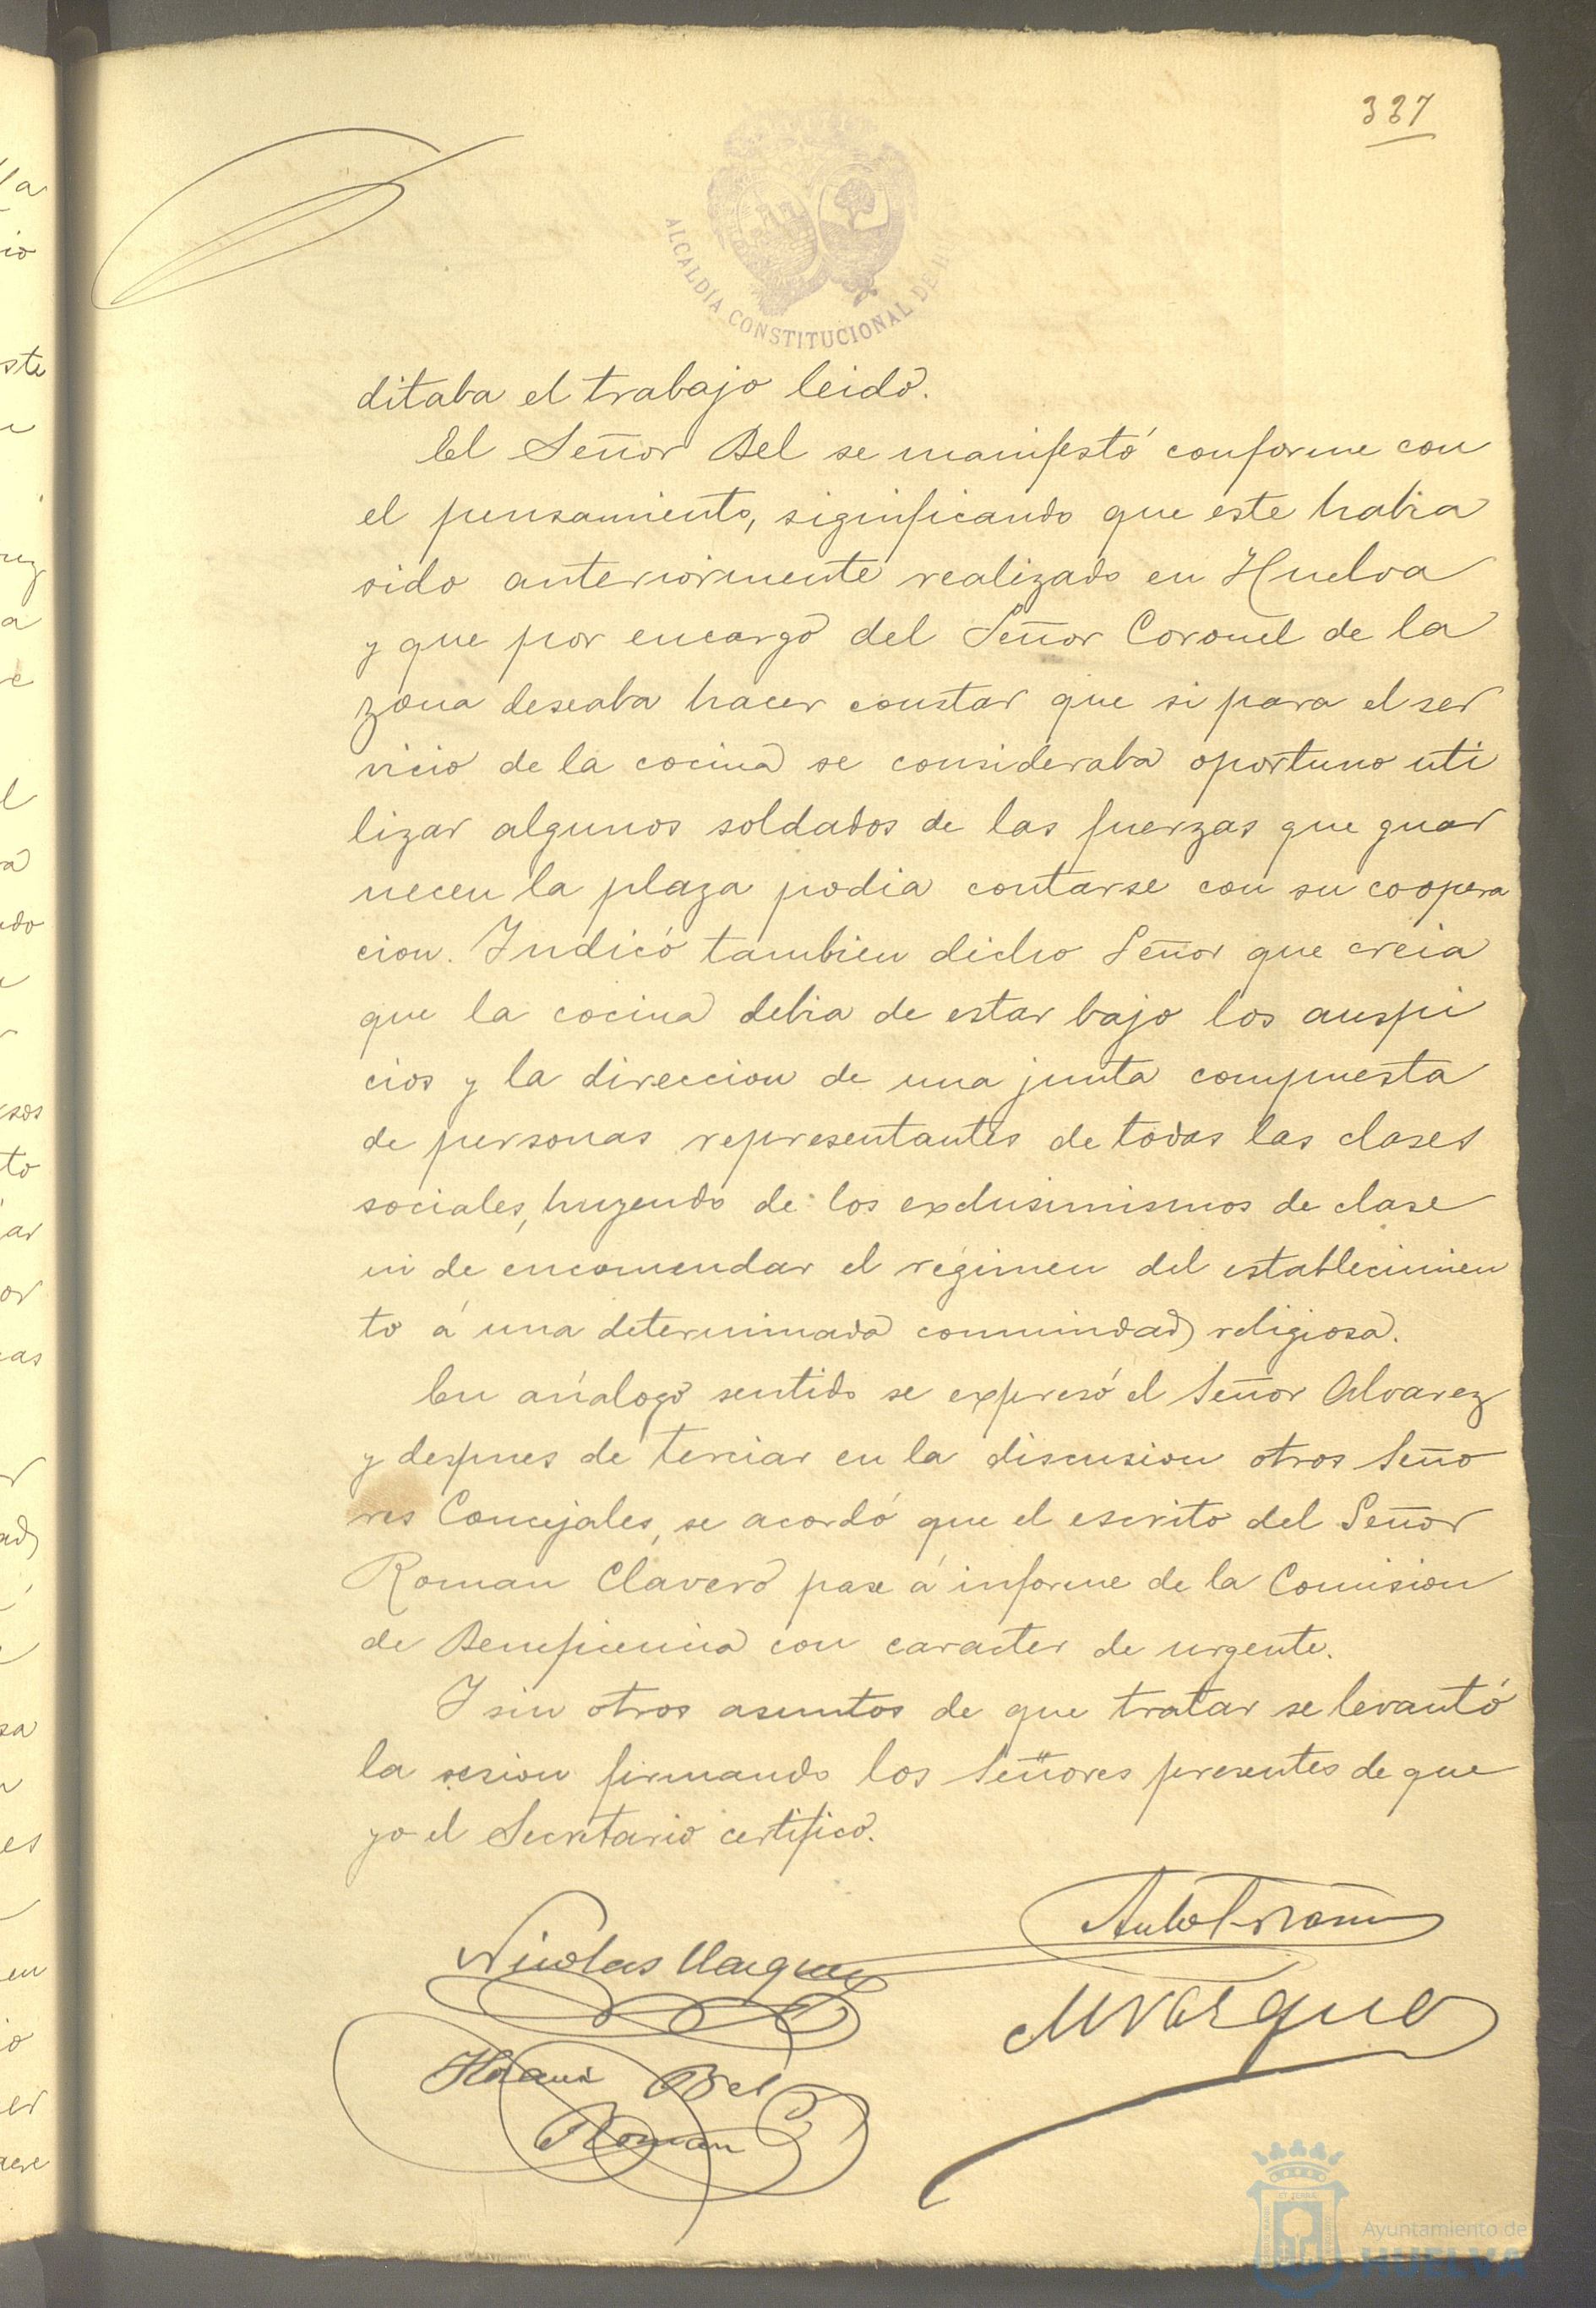 337
ALCALDÍA CONSTITUCIONAL DE H
ditaba el trabajo leido.
El Señor Bel se manifestó conforme con
el pensamiento, significando que este habia
sido anteriormente realizado en Huelva
y que por encargo del Señor Coronel de la
zona deseaba hacer constar que si para el ser
vicio de la cocina se consideraba oportuno uti
lizar algunos soldados de las fuerzas que guar
necen la plaza podia contarse con su coopera
cion. Indicó tambien dicho Señor que creia
que la cocina debia de estar bajo los auspi
cios y la direccion de una junta compuesta
de personas representantes de todas las clases
sociales, huyendo de los exclusivismos de clase
ni de encomendar el régimen del establecimien
to á una determinada comunidad religiosa.
En análogo sentido se expresó el Señor Alvarez
y despues de terciar en la discusion otros Seño
res Concejales, se acordó que el escrito del Señor
Roman Clavero pase á informe de la Comision
de Beneficencia con caracter de urgente.
Y sin otros asuntos de que tratar se levantó
la sesion firmando los Señores presentes de que
yo el Secretario certifico.
Nicolas Vazquez
M Vazquez
Bel
Roman
Ayuntamiento de
HUELVA